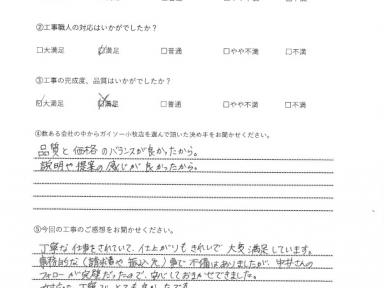 ②工事職人の対応はいかがでしたか？
□大満足 ☑満足 □普通 □やや不満 □不満
③工事の完成度、品質はいかがでしたか？
☑大満足 満足 □普通 □やや不満 □不満
④数ある会社の中からガイソー小牧店を選んで頂いた決め手をお聞かせください。
品質と価格のバランスが良かったから。
説明や提案の感じが良かったから。
⑤今回の工事のご感想をお聞かせください。
丁寧な仕事をされていて、仕上がりもきれいで大変満足しています。
事務的な（請求書や振込先）事で不備はありましたが、中井さんの
フォローが完璧だったので、安心しておまかせできました。